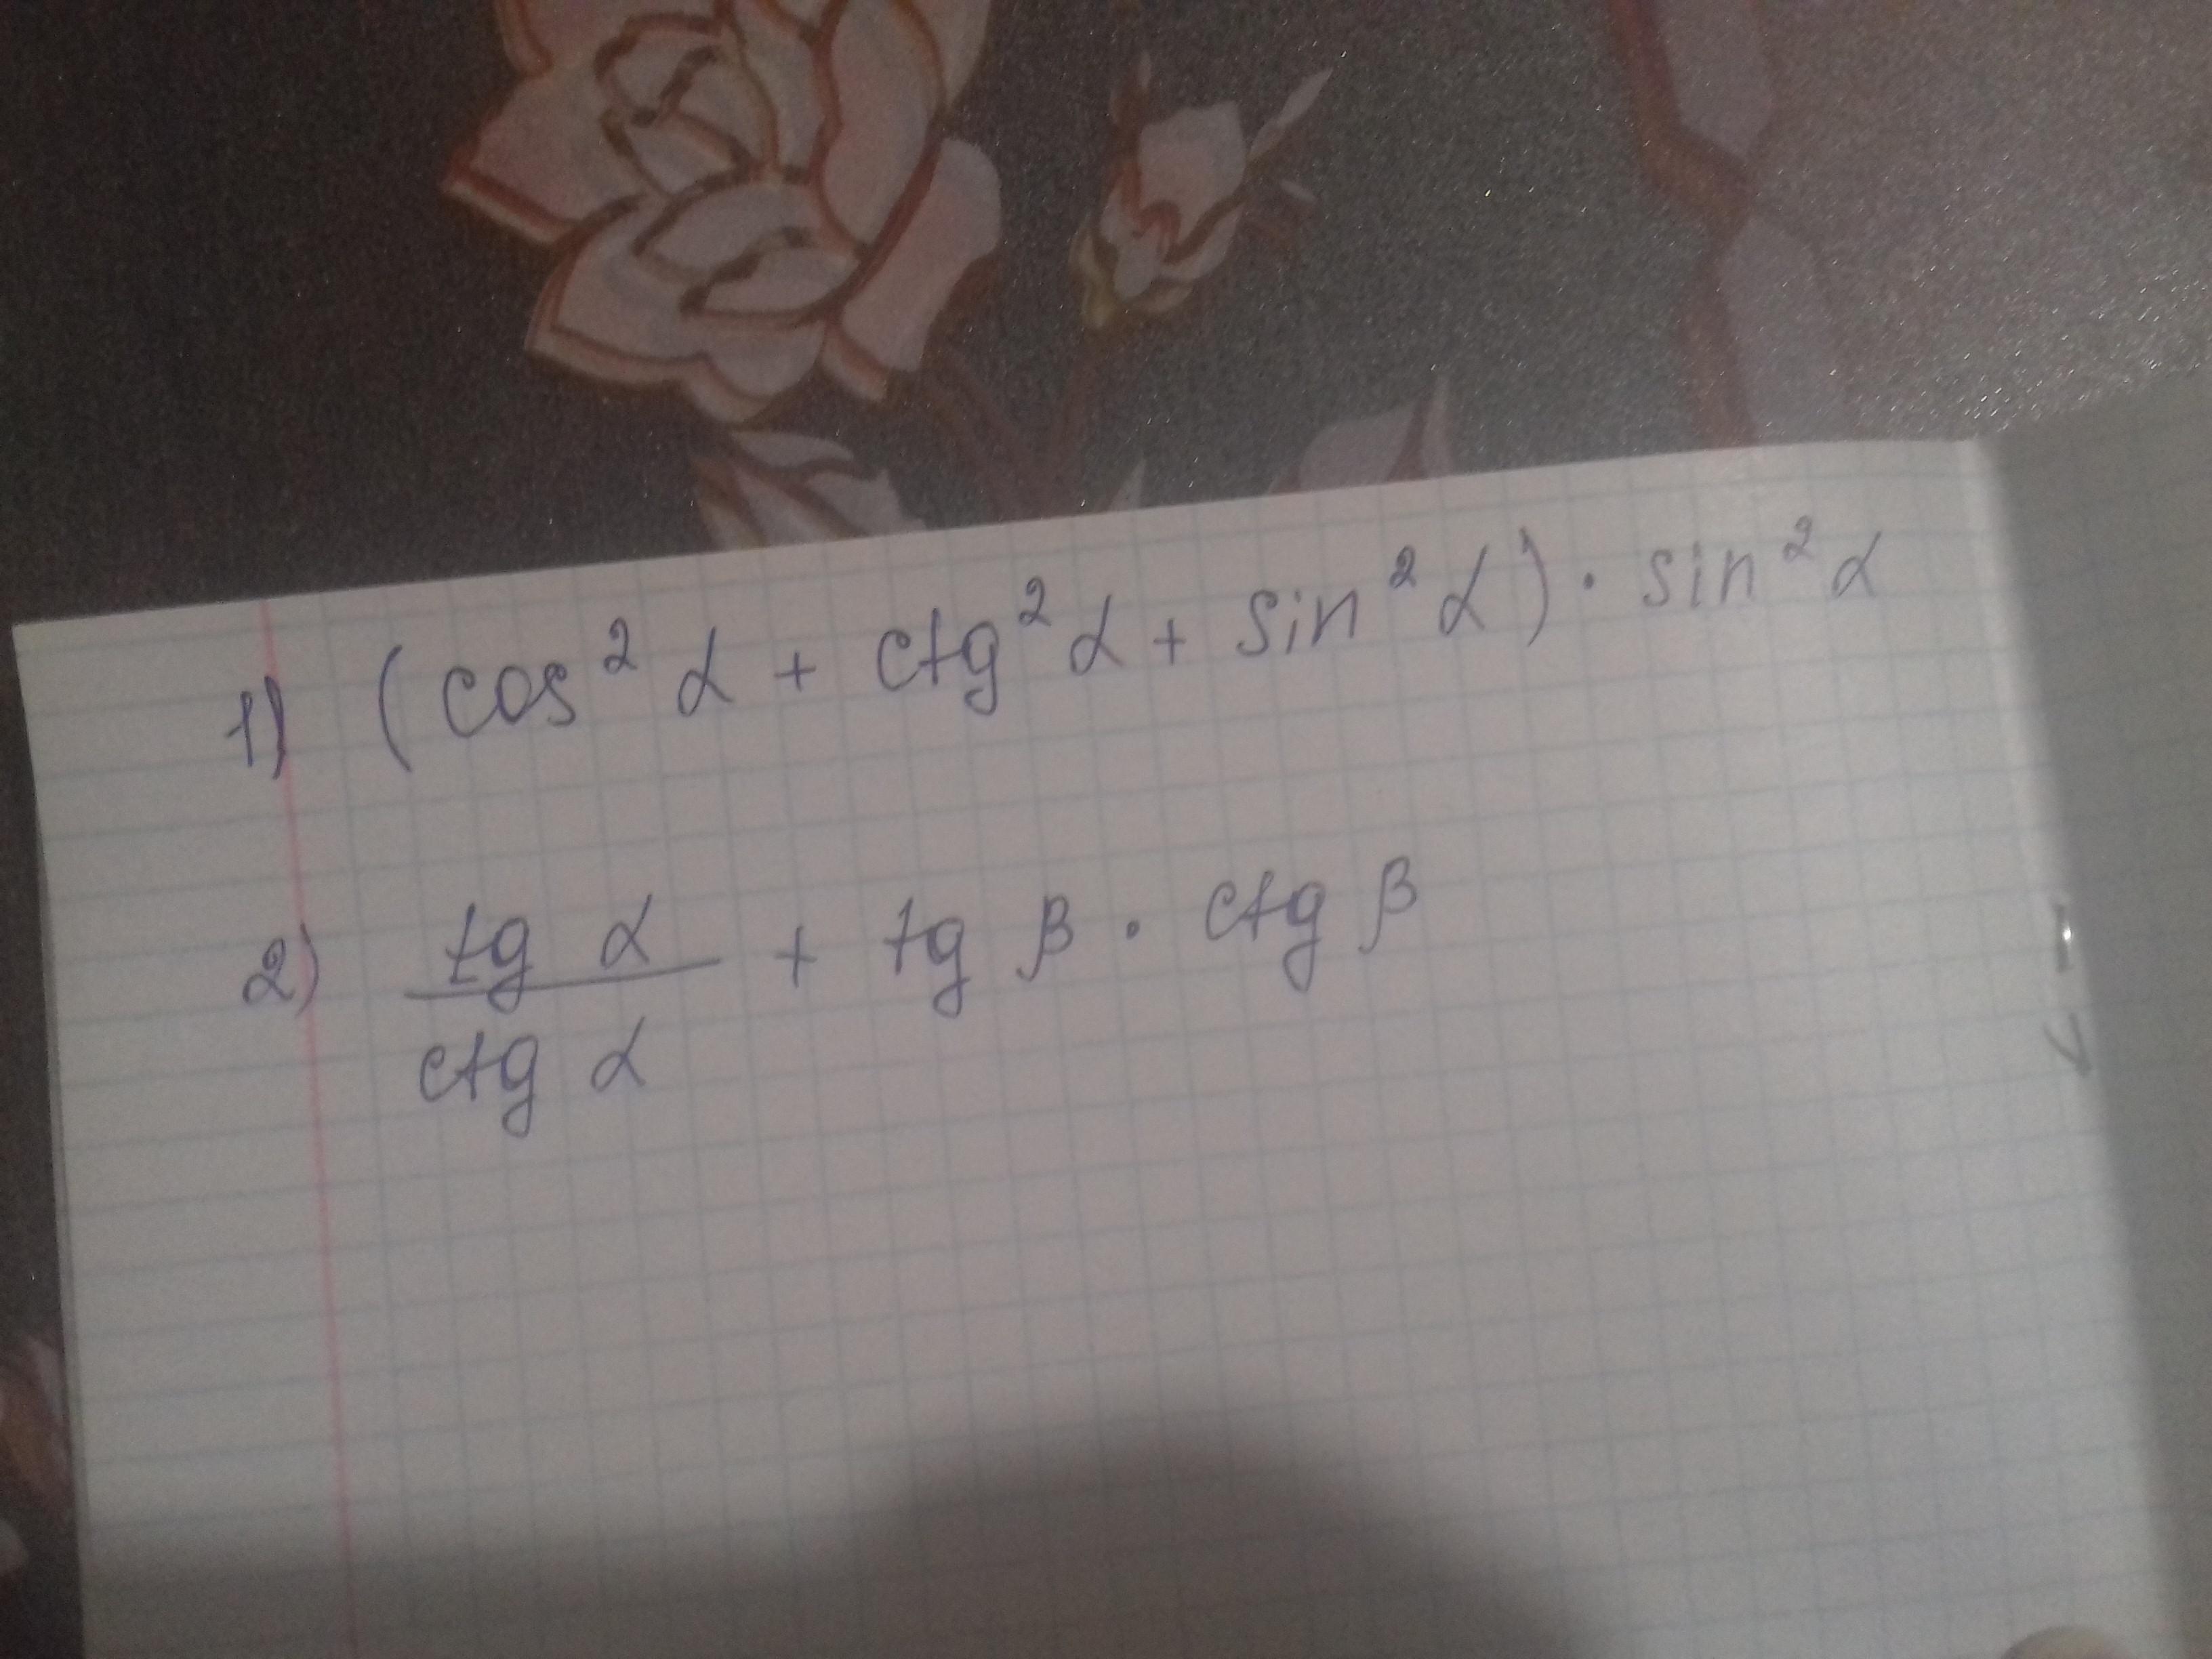 1) (cos² α + ctg² α + sin² α) · sin² α
2) tg α / ctg α + tg β · ctg β